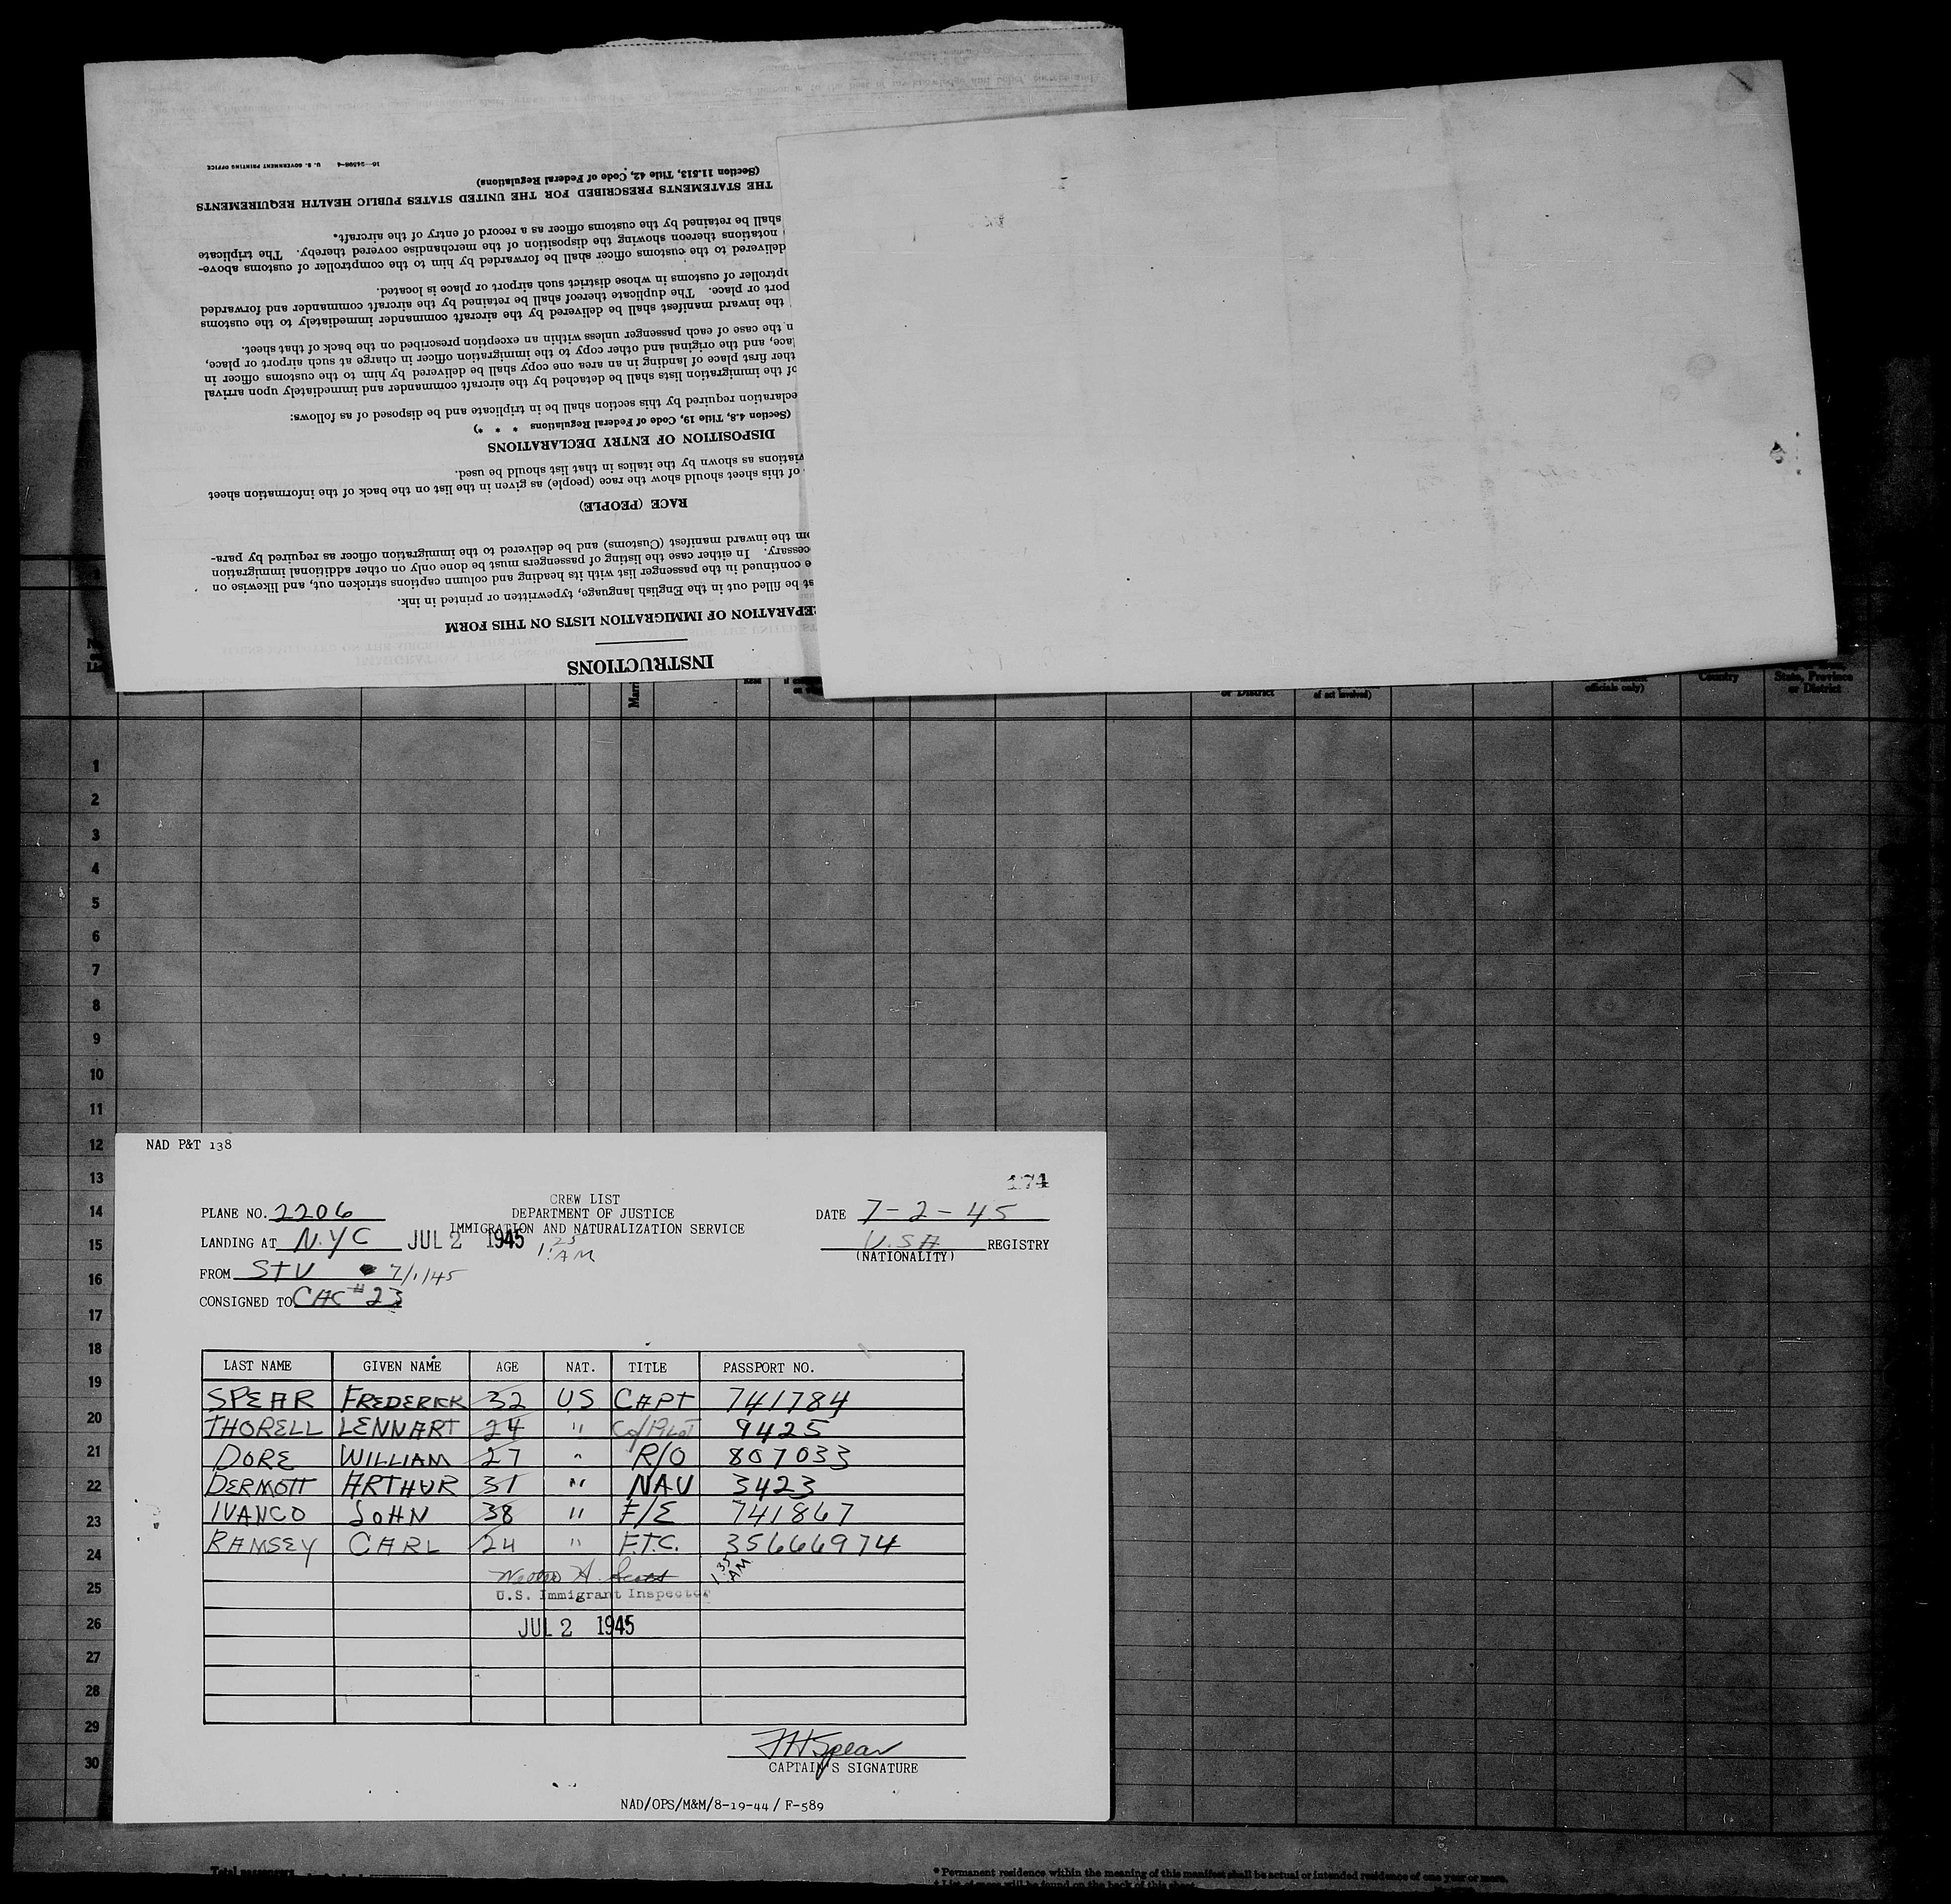 16—24598-4 U. S. GOVERNMENT PRINTING OFFICE
INSTRUCTIONS
EPARATION OF IMMIGRATION LISTS ON THIS FORM
st be filled out in the English language, typewritten or printed in ink.
e continued in the passenger list with its heading and column captions stricken out, and likewise on
cessary. In either case the listing of passengers must be done only on other additional immigration
om the inward manifest (Customs) and be delivered to the immigration officer as required by para-
RACE (PEOPLE)
of this sheet should show the race (people) as given in the list on the back of the information sheet
viations as shown by the italics in that list should be used.
DISPOSITION OF ENTRY DECLARATIONS
(Section 4.8, Title 19, Code of Federal Regulations * * *)
eclaration required by this section shall be in triplicate and be disposed of as follows:
of the immigration lists shall be detached by the aircraft commander and immediately upon arrival
ther first place of landing in an area one copy shall be delivered by him to the customs officer in
lace, and the original and other copy to the immigration officer in charge at such airport or place,
n the case of each passenger unless within an exception prescribed on the back of that sheet.
the inward manifest shall be delivered by the aircraft commander immediately to the customs
port or place. The duplicate thereof shall be retained by the aircraft commander and forwarded
mptroller of customs in whose district such airport or place is located.
delivered to the customs officer shall be forwarded by him to the comptroller of customs above-
notations thereon showing the disposition of the merchandise covered thereby. The triplicate
shall be retained by the customs officer as a record of entry of the aircraft.
THE STATEMENTS PRESCRIBED FOR THE UNITED STATES PUBLIC HEALTH REQUIREMENTS
(Section 11.513, Title 42, Code of Federal Regulations)
Read
or District
of act involved)
officials only)
Country
State, Province
or District
1
2
3
4
5
6
7
8
9
10
11
12
13
14
15
16
17
18
19
20
21
22
23
24
25
26
27
28
29
30
NAD P&T 138
174
CREW LIST
PLANE NO. 2206 DEPARTMENT OF JUSTICE DATE 7-2-45
IMMIGRATION AND NATURALIZATION SERVICE
LANDING AT N.Y.C JUL 2 1945 1:25 AM U.S.A REGISTRY
(NATIONALITY)
FROM STV 7/1/45
CONSIGNED TO CAC #23
LAST NAME GIVEN NAME AGE NAT. TITLE PASSPORT NO.
SPEAR FREDERICK 32 US CAPT 741784
THORELL LENNART 24 " Co/Pilot 9425
DORE WILLIAM 27 " R/O 807033
DERMOTT ARTHUR 31 " NAV 3423
IVANCO JOHN 38 " F/E 741867
RAMSEY CARL 24 " F.T.C. 35666974
1:35 AM
U.S. Immigrant Inspector
JUL 2 1945
FHSpear
CAPTAIN'S SIGNATURE
NAD/OPS/M&M/8-19-44/ F-589
Total passengers
* Permanent residence within the meaning of this manifest shall be actual or intended residence of one year or more.
† List of races will be found on the back of this sheet.